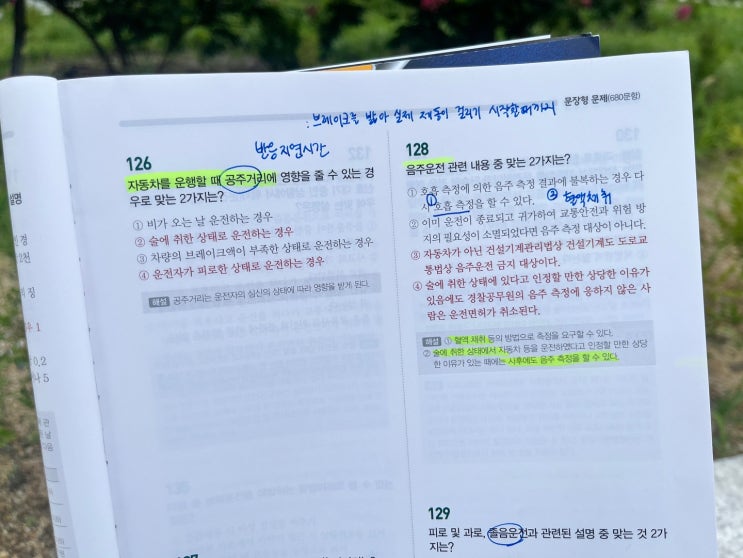 문장형 문제(680문항)
: 브레이크를 밟아 실제 제동이 걸리기 시작할때까지
반응지연시간
126
자동차를 운행할 때 공주거리에 영향을 줄 수 있는 경
우로 맞는 2가지는?
① 비가 오는 날 운전하는 경우
② 술에 취한 상태로 운전하는 경우
③ 차량의 브레이크액이 부족한 상태로 운전하는 경우
④ 운전자가 피로한 상태로 운전하는 경우
해설 공주거리는 운전자의 심신의 상태에 따라 영향을 받게 된다.
128
음주운전 관련 내용 중 맞는 2가지는?
① 호흡 측정에 의한 음주 측정 결과에 불복하는 경우 다
시 호흡 측정을 할 수 있다.
① ② 혈액채취
② 이미 운전이 종료되고 귀가하여 교통안전과 위험 방
지의 필요성이 소멸되었다면 음주 측정 대상이 아니다.
③ 자동차가 아닌 건설기계관리법상 건설기계도 도로교
통법상 음주운전 금지 대상이다.
④ 술에 취한 상태에 있다고 인정할 만한 상당한 이유가
있음에도 경찰공무원의 음주 측정에 응하지 않은 사
람은 운전면허가 취소된다.
해설 ① 혈액 채취 등의 방법으로 측정을 요구할 수 있다.
② 술에 취한 상태에서 자동차 등을 운전하였다고 인정할 만한 상당
한 이유가 있는 때에는 사후에도 음주 측정을 할 수 있다.
129
피로 및 과로, 졸음운전과 관련된 설명 중 맞는 것 2가
지는?